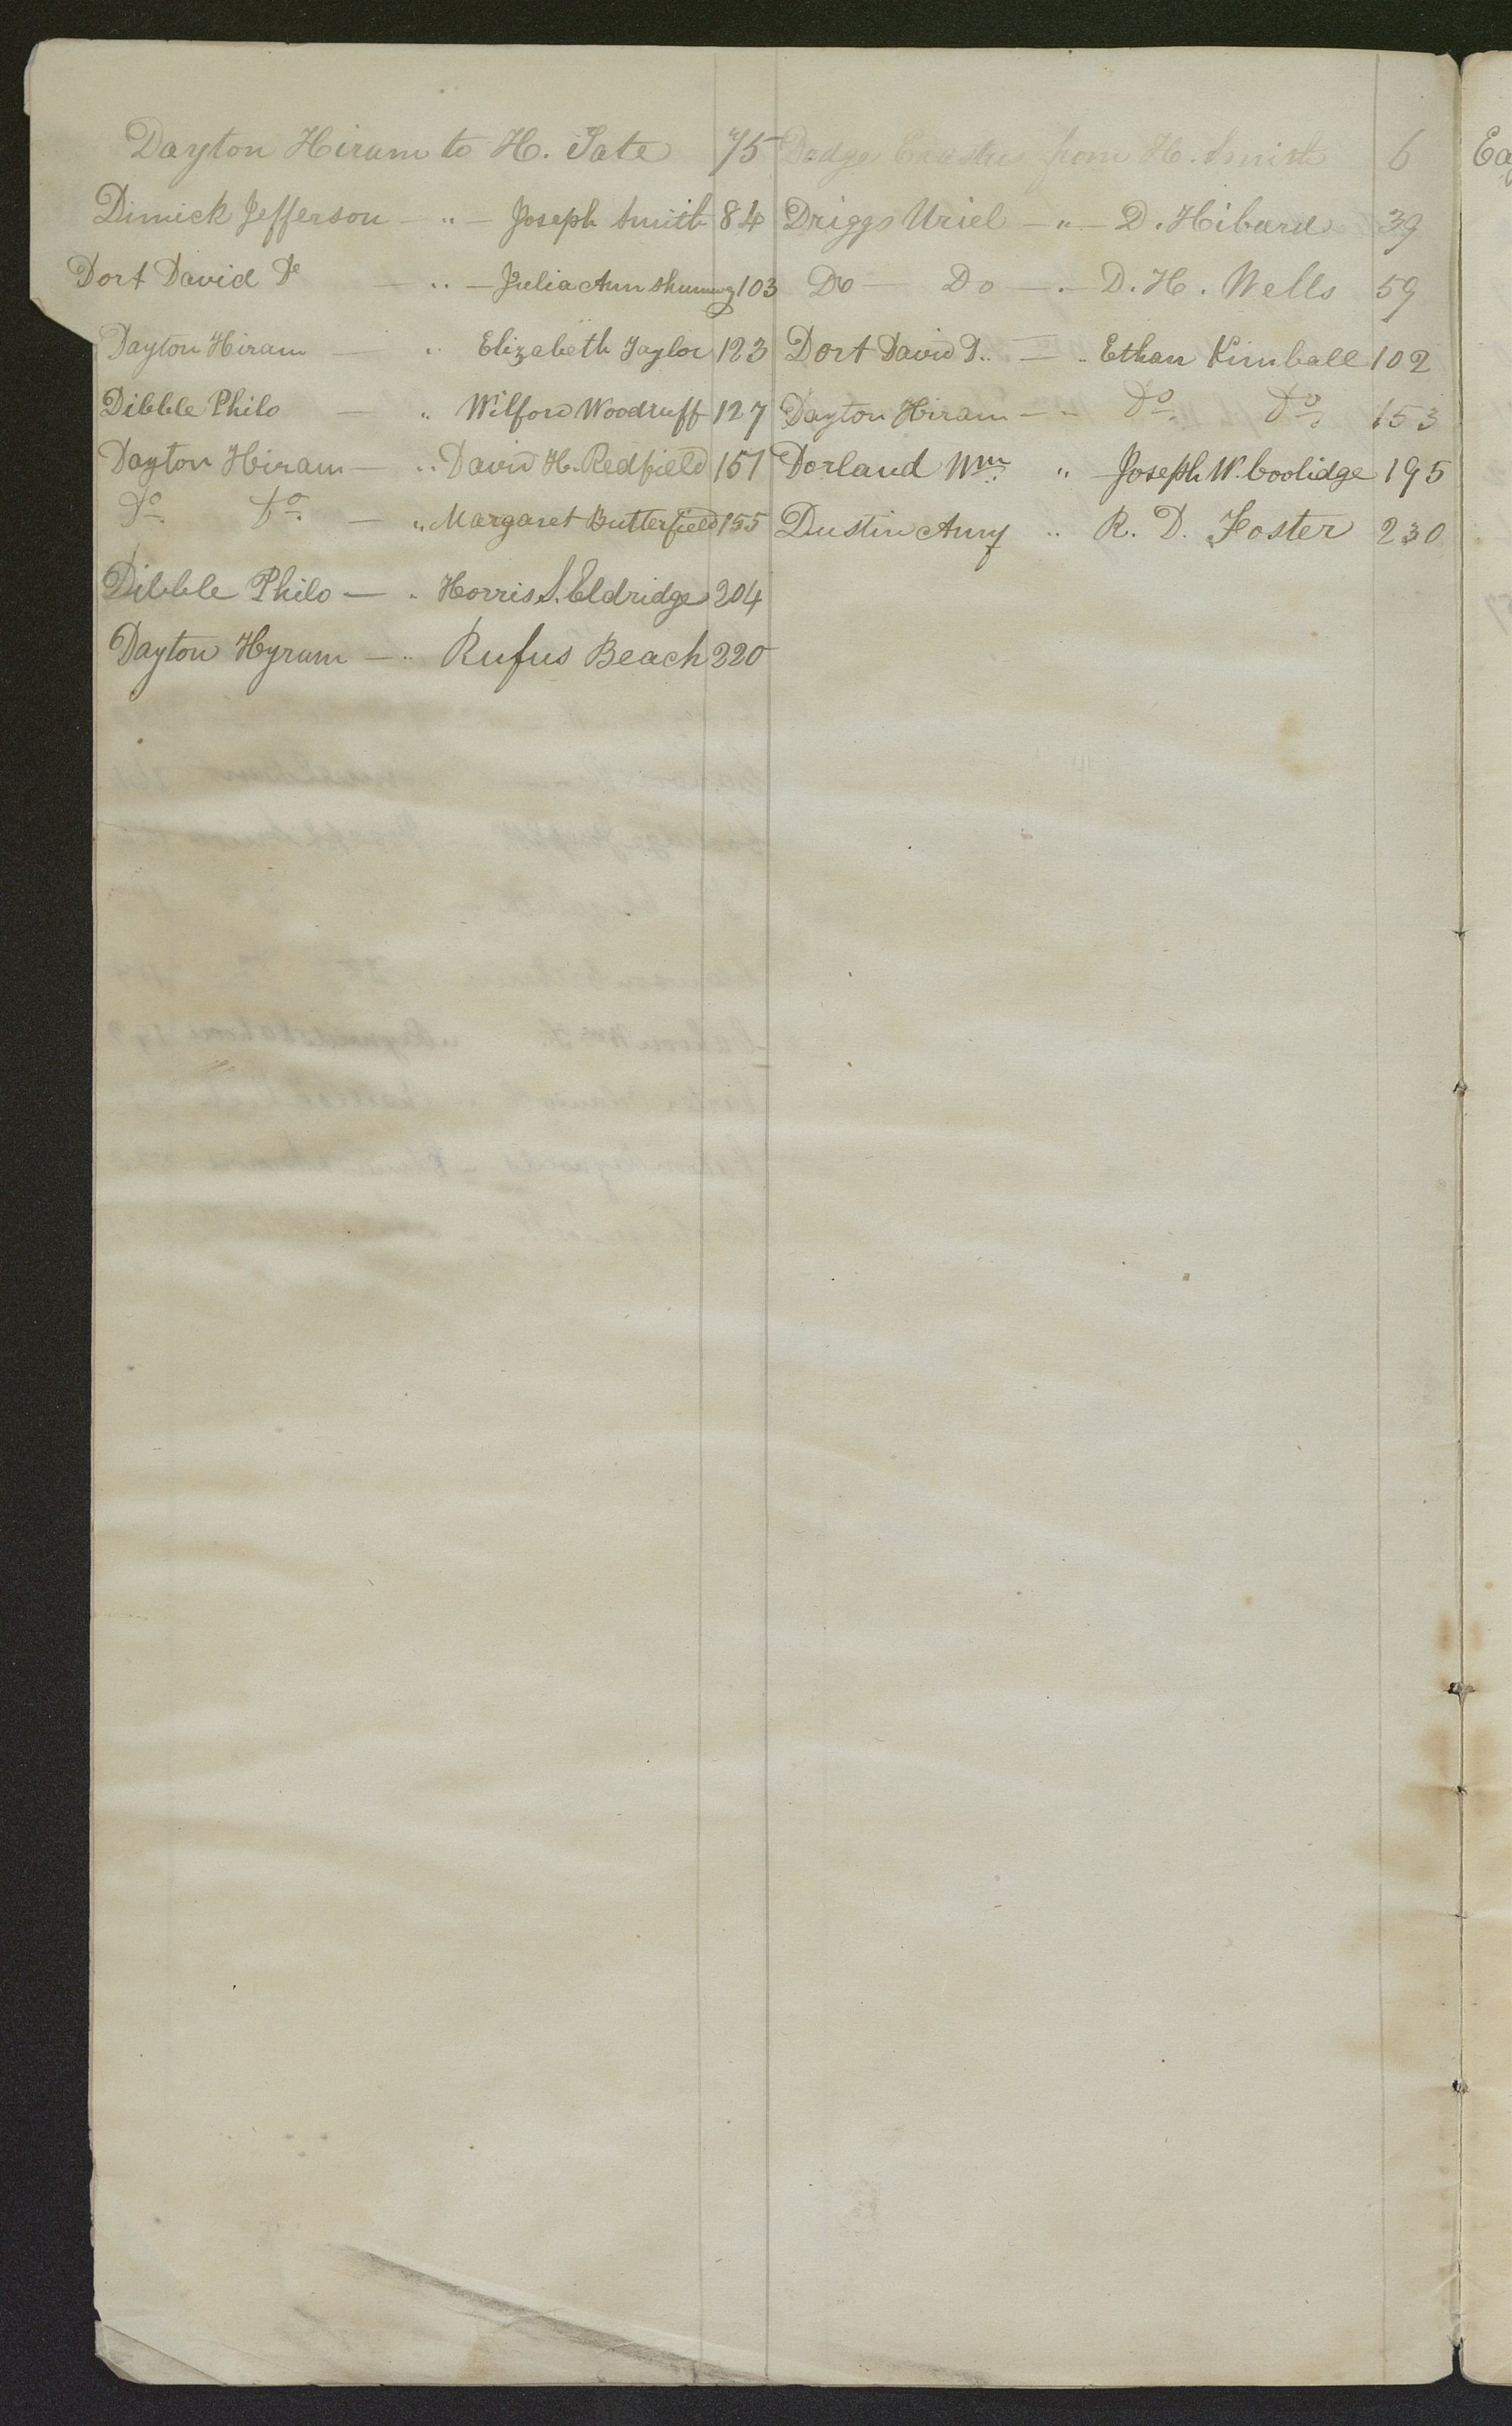 Dayton Hiram to H. Tate 75
Dimick Jefferson — " — Joseph Smith 84
Dort David D — " — Julia Ann Shumwy 103
Dayton Hiram — " Elizabeth Taylor 123
Dibble Philo — " Wilford Woodruff 127
Dayton Hiram — " David H. Redfield 151
Do. Do. — " Margaret Butterfield 155
Dibble Philo — " Horris S. Eldridge 204
Dayton Hyrum — " Rufus Beach 220
Dodge Erastus from H. Smith 6
Driggs Uriel — " — D. Hibard 39
Do — Do — " — D. H. Wells 59
Dort David D. — " Ethan Kimball 102
Dayton Hiram — " Do. Do. 153
Dorland Wm. " Joseph W. Coolidge 195
Dustin Amy " R. D. Foster 230